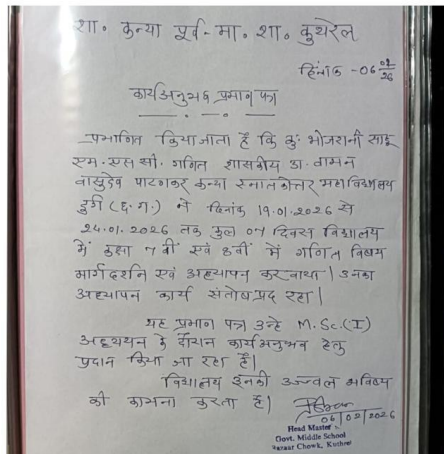 शा. कन्या पूर्व-मा. शा. कुथरेल
दिनांक -06/02/26
कार्यअनुभव प्रमाण पत्र
प्रमाणित किया जाता है कि कु. भोजरानी साहू
एम. एस सी. गणित शासकीय डा. वामन
वासुदेव पाटणकर कन्या स्नातकोत्तर महाविद्यालय
दुर्ग (छ.ग.) ने दिनांक 19.01.2026 से
24.01.2026 तक कुल 07 दिवस विद्यालय
में कक्षा 7वीं एवं 8वीं में गणित विषय
मार्गदर्शन एवं अध्यापन करवाया। उनका
अध्यापन कार्य संतोषप्रद रहा।
यह प्रमाण पत्र उन्हे M.Sc.(I)
अध्ययन के दौरान कार्यअनुभव हेतु
प्रदान किया जा रहा है।
विद्यालय इनकी उज्ज्वल भविष्य
की कामना करता है।
06/02/2026
Head Master
Govt. Middle School
Bazaar Chowk, Kuthrel